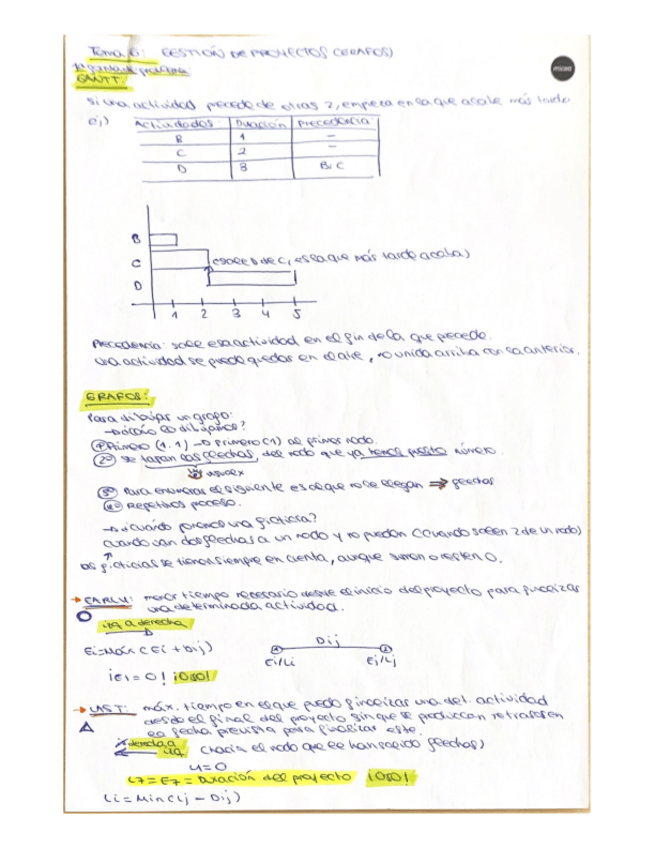 Tema 6: GESTIÓN DE PROYECTOS (GRAFOS)
GANTT:
micea
si una actividad precede de otras 2, empieza en la que acabe más tarde.
ej)
Actividades Duración Precedencia
B 1 -
C 2 -
D 3 B,C
B
C
D
(sale de C, es la que más tarde acaba)
1 2 3 4 5
Precedencia: sale esa actividad en el fin de la que precede.
una actividad se puede quedar en el aire, no unida arriba con la anterior.
GRAFOS:
Para dibujar un grafo:
→ ¿cómo los dibujamos?
1º Primero (1.1) → Primero (1) al primer nodo.
2º se tapan las flechas, del nodo que ya hemos puesto número.
3º Para enumerar el siguiente es el que no le llegan ⇒ flechas
4º Repetimos proceso.
→ ¿Cuándo ponemos una ficticia?
cuando van dos flechas a un nodo y no pueden (cuando salen 2 de un nodo)
las ficticias se tienen siempre en cuenta, aunque sumen o resten 0.
→ EARLY: menor tiempo necesario desde el inicio del proyecto para finalizar
una determinada actividad.
izq a derecha
Ej=Máx (Ei + Dij)
Dij
1 2
Ei/Li Ej/Lj
¡E1 = 0! ¡OJO!
→ LAST: máx. tiempo en el que puedo finalizar una det. actividad
desde el final del proyecto sin que se produzcan retrasos en
la fecha prevista para finalizar este.
derecha a
izq (hacia el nodo que le han salido flechas)
L1=0
L7 = E7 = Duración del proyecto ¡OJO!
Li = Min (Lj - Dij)